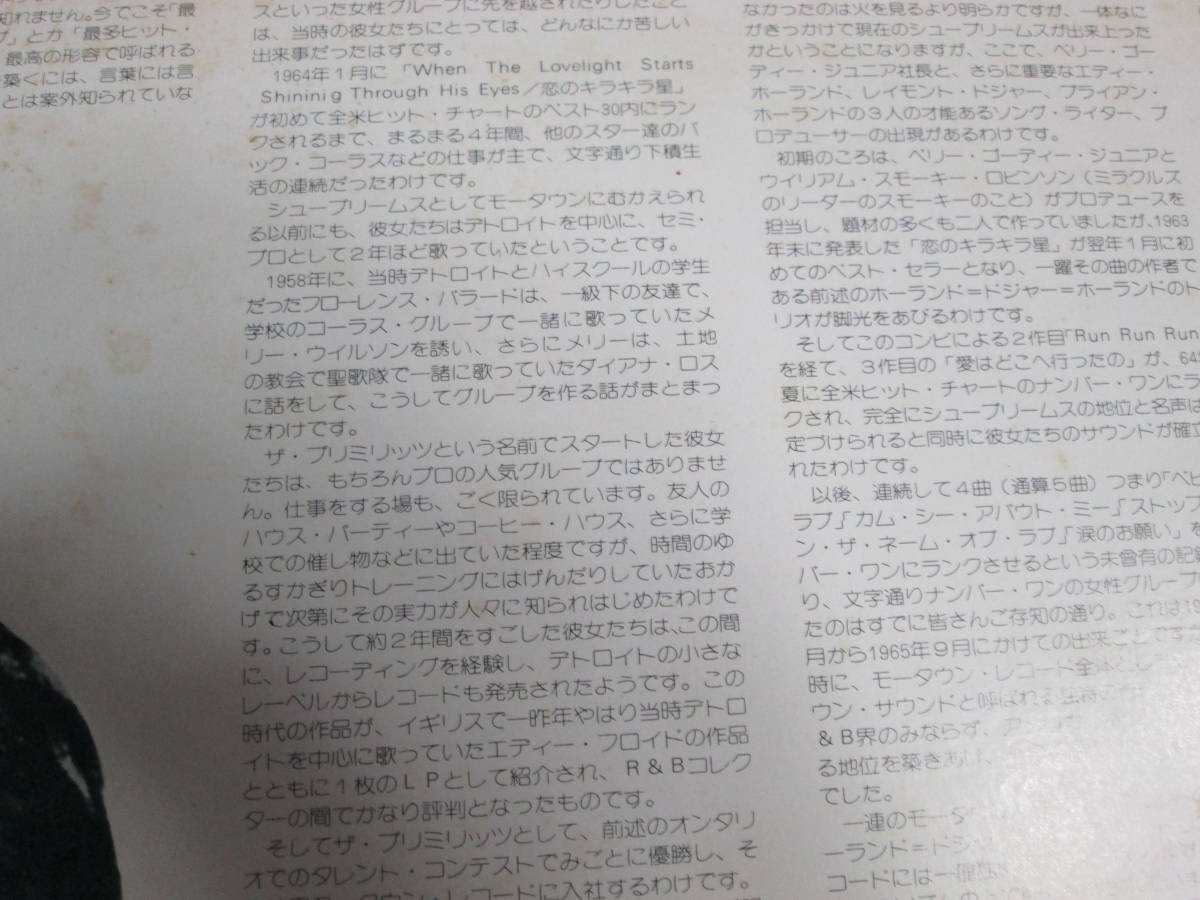 知れません。今でこそ「最
とか「最多ヒット・
最高の形容で呼ばれる
築くには、言葉には言
とは案外知られていな
スといった女性グループに先を越されたりしたこと
は、当時の彼女たちにとっては、どんなにか苦しい
出来事だったはずです。
1964年1月に「When The Lovelight Starts
Shininig Through His Eyes/恋のキラキラ星」
が初めて全米ヒット・チャートのベスト30内にラン
クされるまで、まるまる4年間、他のスター達のバ
ック・コーラスなどの仕事が主で、文字通り下積生
活の連続だったわけです。
シュープリームスとしてモータウンにむかえられ
る以前にも、彼女たちはデトロイトを中心に、セミ・
プロとして2年ほど歌っていたということです。
1958年に、当時デトロイトとハイスクールの学生
だったフローレンス・バラードは、一級下の友達で、
学校のコーラス・グループで一諸に歌っていたメ
リー・ウイルソンを誘い、さらにメリーは、土地
の教会で聖歌隊で一諸に歌っていたダイアナ・ロス
に話をして、こうしてグループを作る話がまとまっ
たわけです。
ザ・プリミリッツという名前でスタートした彼女
たちは、もちろんプロの人気グループではありませ
ん。仕事をする場も、ごく限られています。友人の
ハウス・パーティーやコーヒー・ハウス、さらに学
校での催し物などに出ていた程度ですが、時間のゆ
るすかぎりトレーニングにはげんだりしていたおか
げで次第にその実力が人々に知られはじめたわけで
す。こうして約2年間をすごした彼女たちは、この間
に、レコーディングを経験し、デトロイトの小さな
レーベルからレコードも発売されたようです。この
時代の作品が、イギリスで一昨年やはり当時デトロ
イトを中心に歌っていたエディー・フロイドの作品
とともに1枚のLPとして紹介され、R&Bコレク
ターの間でかなり評判となったものです。
そしてザ・プリミリッツとして、前述のオンタリ
オでのタレント・コンテストでみごとに優勝し、そ
タウン・レコードに入社するわけです。
なかったのは火を見るより明らかですが、一体なに
がきっかけで現在のシュープリームスが出来上った
かということになりますが、ここで、ベリー・ゴー
ディー・ジュニア社長と、さらに重要なエディー・
ホーランド、レイモント・ドジャー、ブライアン・
ホーランドの3人の才能あるソング・ライター、プ
ロデューサーの出現があるわけです。
初期のころは、ベリー・ゴーディー・ジュニアと
ウイリアム・スモーキー・ロビンソン(ミラクルズ
のリーダーのスモーキーのこと)がプロデュースを
担当し、題材の多くも二人で作っていましたが、1963
年末に発表した「恋のキラキラ星」が翌年1月に初
めてのベスト・セラーとなり、一躍その曲の作者で
ある前述のホーランド=ドジャー=ホーランドのト
リオが脚光をあびるわけです。
そしてこのコンビによる2作目「Run Run Run
を経て、3作目の「愛はどこへ行ったの」が、64
夏に全米ヒット・チャートのナンバー・ワンにラ
クされ、完全にシュープリームスの地位と名声は
定づけられると同時に彼女たちのサウンドが確立
れたわけです。
以後、連続して4曲(通算5曲)つまり「ベビ
ラブ」「カム・シー・アバウト・ミー」「ストップ
ン・ザ・ネーム・オブ・ラブ」「涙のお願い」を
バー・ワンにランクさせるという未曾有の記録
り、文字通りナンバー・ワンの女性グループ
たのはすでに皆さんご存知の通り。これは
月から1965年9月にかけての出来ごとです
時に、モータウン・レコード全体
ウン・サウンドと呼ばれる独特の
&B界のみならず、
る地位を築きあげ、
でした。
一連のモータ
ーランド=ドジ
コードには一種